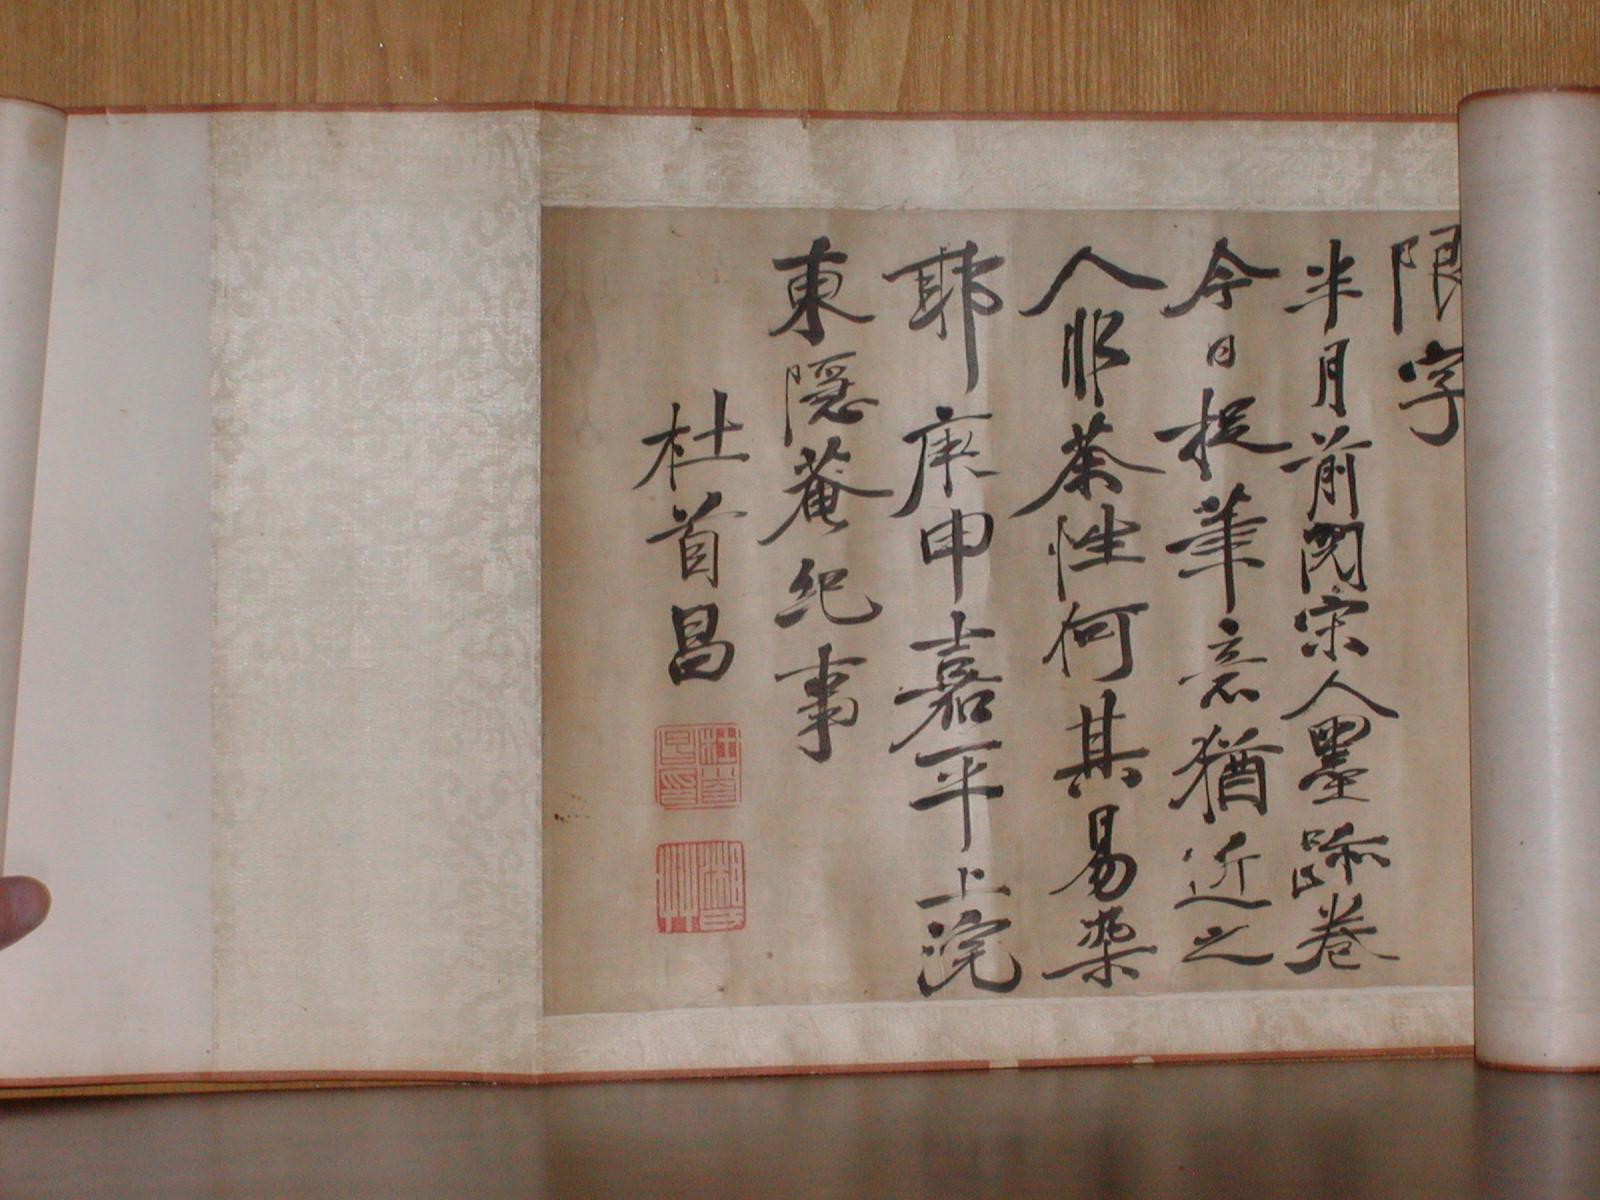 限字
半月前閱宋人墨跡卷
今日捉筆意猶近之
人非茶性何其易染
耶庚申嘉平上浣
東隱菴紀事
杜首昌
杜首昌印